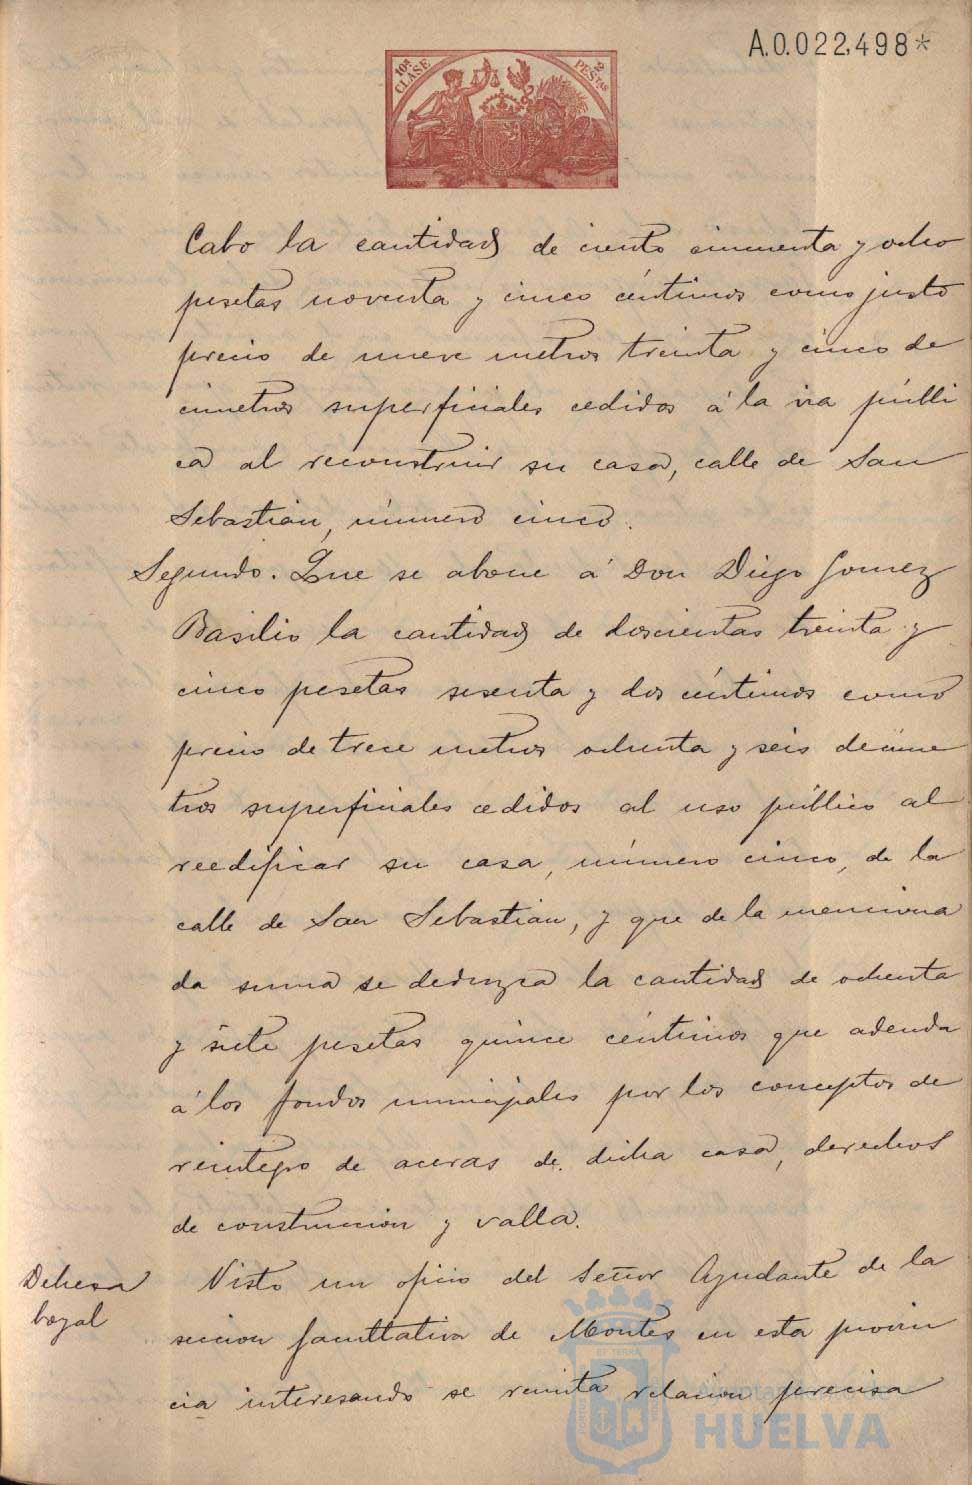 A.0.022,498*
10ª CLASE
2 PESTAS
Cabo la cantidad de ciento cincuenta y ocho
pesetas noventa y cinco céntimos como justo
precio de nueve metros treinta y cinco de
cimetros superficiales cedidos á la via públi
ca al reconstruir su casa, calle de San
Sebastian, número cinco.
Segundo. Que se abone á Don Diego Gomez
Basilio la cantidad de doscientas treinta y
cinco pesetas sesenta y dos céntimos como
precio de trece metros ochenta y seis decime
tros superficiales cedidos al uso público al
reedificar su casa, número cinco, de la
calle de San Sebastian, y que de la menciona
da suma se deduzca la cantidad de ochenta
y siete pesetas quince céntimos que adeuda
á los fondos municipales por los conceptos de
reintegro de aceras de dicha casa, derechos
de construccion y valla.
Dehesa
boyal
Visto un oficio del Señor Ayudante de la
seccion facultativa de Montes en esta provin
cia interesando se remita relacion precisa
Ayuntamiento de
HUELVA